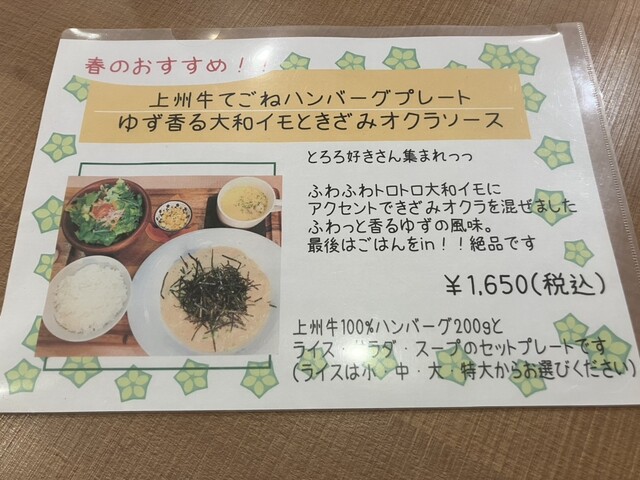 春のおすすめ！！
上州牛てごねハンバーグプレート
ゆず香る大和イモときざみオクラソース
とろろ好きさん集まれっっ
ふわふわトロトロ大和イモに
アクセントできざみオクラを混ぜました
ふわっと香るゆずの風味。
最後はごはんをin！！絶品です
￥1,650(税込)
上州牛100%ハンバーグ200gと
ライス・サラダ・スープのセットプレートです
(ライスは小・中・大・特大からお選びください)